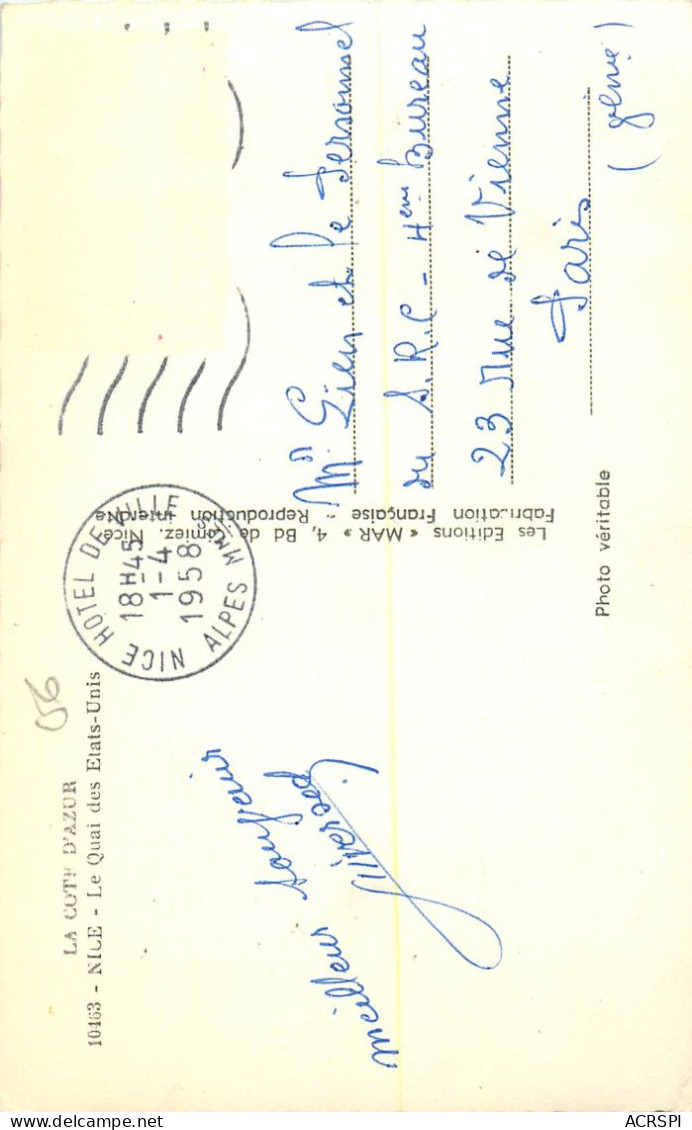 LA COTE D'AZUR
10463 - NICE - Le Quai des Etats-Unis
56
meilleur souvenir
NICE HOTEL DE VILLE
18H45
1-4
1958
ALPES MMES
Les Editions « MAR » 4, Bd de Cimiez. Nice.
Fabrication Française - Reproduction interdite
Photo véritable
Mr Lien et le Personnel
du S.R.P - 4ème Bureau
23 Rue de Vienne
Paris
(8eme)
ACRSPI